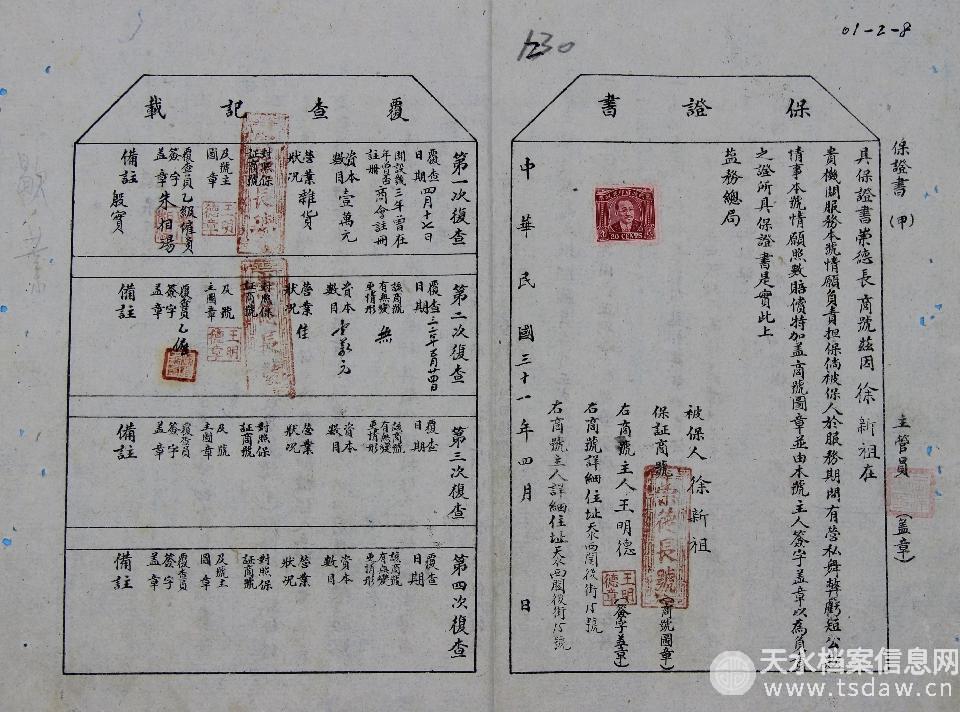 01-2-8
1230
保證書（甲）
主管員（盖章）
保證書
具保證書崇德長商號茲因徐新祖在
貴機關服務本號情願負責担保倘被保人於服務期間有營私舞弊虧短公
情事本號情願照數賠償特加盖商號圖章並由本號主人簽字盖章以為負責
之證所具保證書是實此上
盐務總局
20 CENTS
被保人徐新祖
保証商號崇德長號（商號圖章）
右商號主人王明德（簽字盖章）
王明德章
右商號詳細住址天水西関後街15號
右商號主人詳細住址天水西関後街15號
中華民國三十一年四月　日
覆查記載
第一次復查
覆查日期四月十七日
開設幾年曾否註冊三年曾在商會註冊
資本數目壹萬元
營業狀況雜貨
對照保証商號及號主圖章
王明德章
覆查員簽字盖章乙級僱員朱相場
備註殷實
第二次復查
覆查日期
該商號有無變更情形無
資本數目壹萬元
營業狀況佳
對照保証商號及號主圖章
王明德章
覆查員簽字盖章
備註
第三次復查
覆查日期
該商號有無變更情形
資本數目
營業狀況
對照保証商號及號主圖章
覆查員簽字盖章
備註
第四次復查
覆查日期
該商號有無變更情形
資本數目
營業狀況
對照保証商號及號主圖章
覆查員簽字盖章
備註
天水档案信息网
www.tsdaw.cn